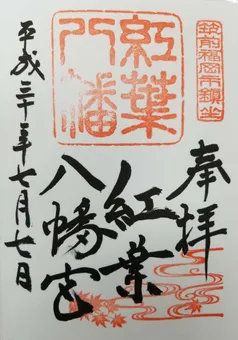 筑前福岡市鎮坐
奉拝
紅葉八幡
紅葉
八幡宮
平成三十年七月七日